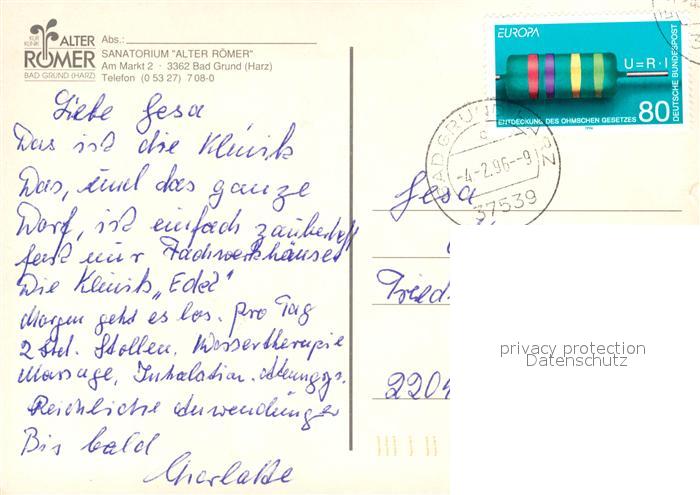 KUR
KLINIK
ALTER
RÖMER
BAD GRUND (HARZ)
Abs.:
SANATORIUM "ALTER RÖMER"
Am Markt 2 · 3362 Bad Grund (Harz)
Telefon (0 53 27) 7 08-0
Liebe Gesa
Das ist die Klinik
Das, und das ganze
Dorf, ist einfach zauberhaft
fast nur Fachwerkhäuser
Die Klinik
Morgen geht es los. pro Tag
2 Std. Stollen. Wassertherapie
Massage, Inhalation. Atemgys.
Reichliche Anwendungen
Bis bald
Charlotte
EUROPA
U=R·I
DEUTSCHE BUNDESPOST
ENTDECKUNG DES OHMSCHEN GESETZES
80
1994
BAD GRUND, HARZ
c
-4.-2.96.--9
37539
Gesa
Fried
2204
privacy protection
Datenschutz